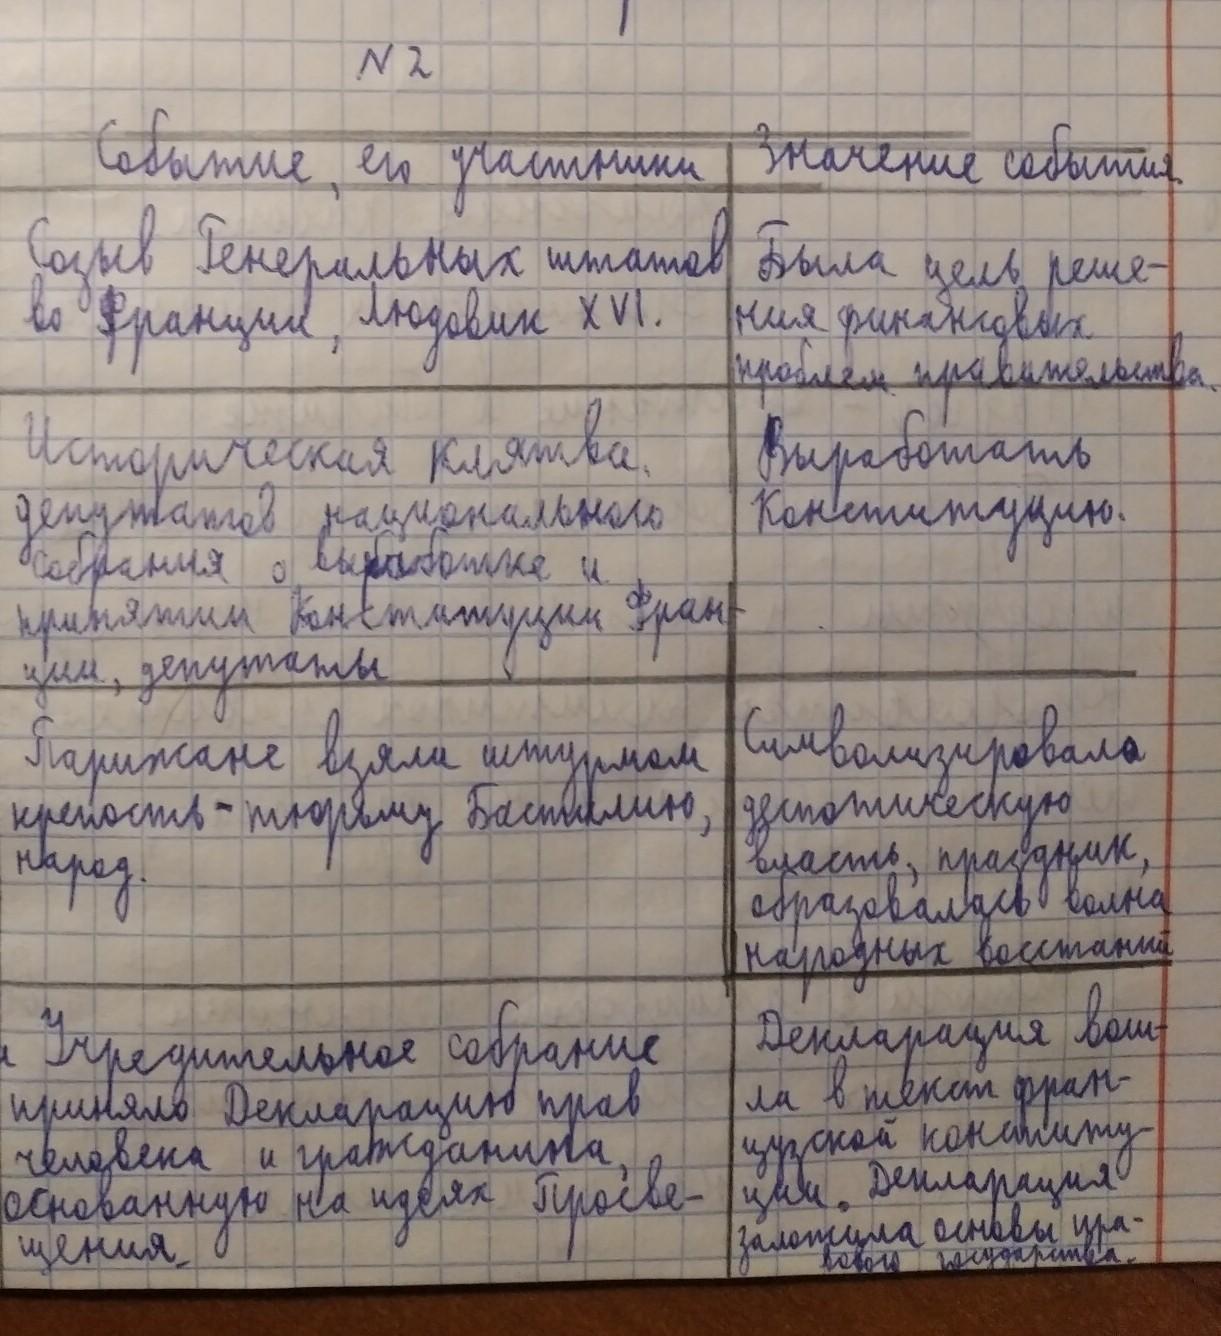 N 2
Событие, его участники
Значение события.
Созыв Генеральных штатов
во Франции, Людовик XVI.
Была цель реше-
ния финансовых
проблем правительства.
Историческая клятва.
депутатов национального
собрания о выработке и
принятии Конституции Фран-
ции, депутаты
Выработать
Конституцию.
Парижане взяли штурмом
крепость-тюрьму Бастилию,
народ.
Символизировала
деспотическую
власть, праздник,
образовалась волна
народных восстаний
Учредительное собрание
приняло Декларацию прав
человека и гражданина,
основанную на идеях Просве-
щения.
Декларация вош-
ла в текст фран-
цузской конститу-
ции. Декларация
заложила основы пра-
вового государства.